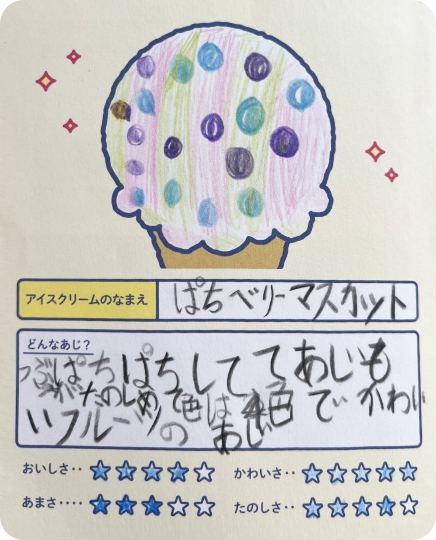 アイスクリームのなまえ ぱちベリーマスカット
どんなあじ?
ぱちぱちしてて あじも
たのしめて色は 色で かわい
いフルーツの あじ
おいしさ‥ かわいさ‥
あまさ‥‥ たのしさ‥